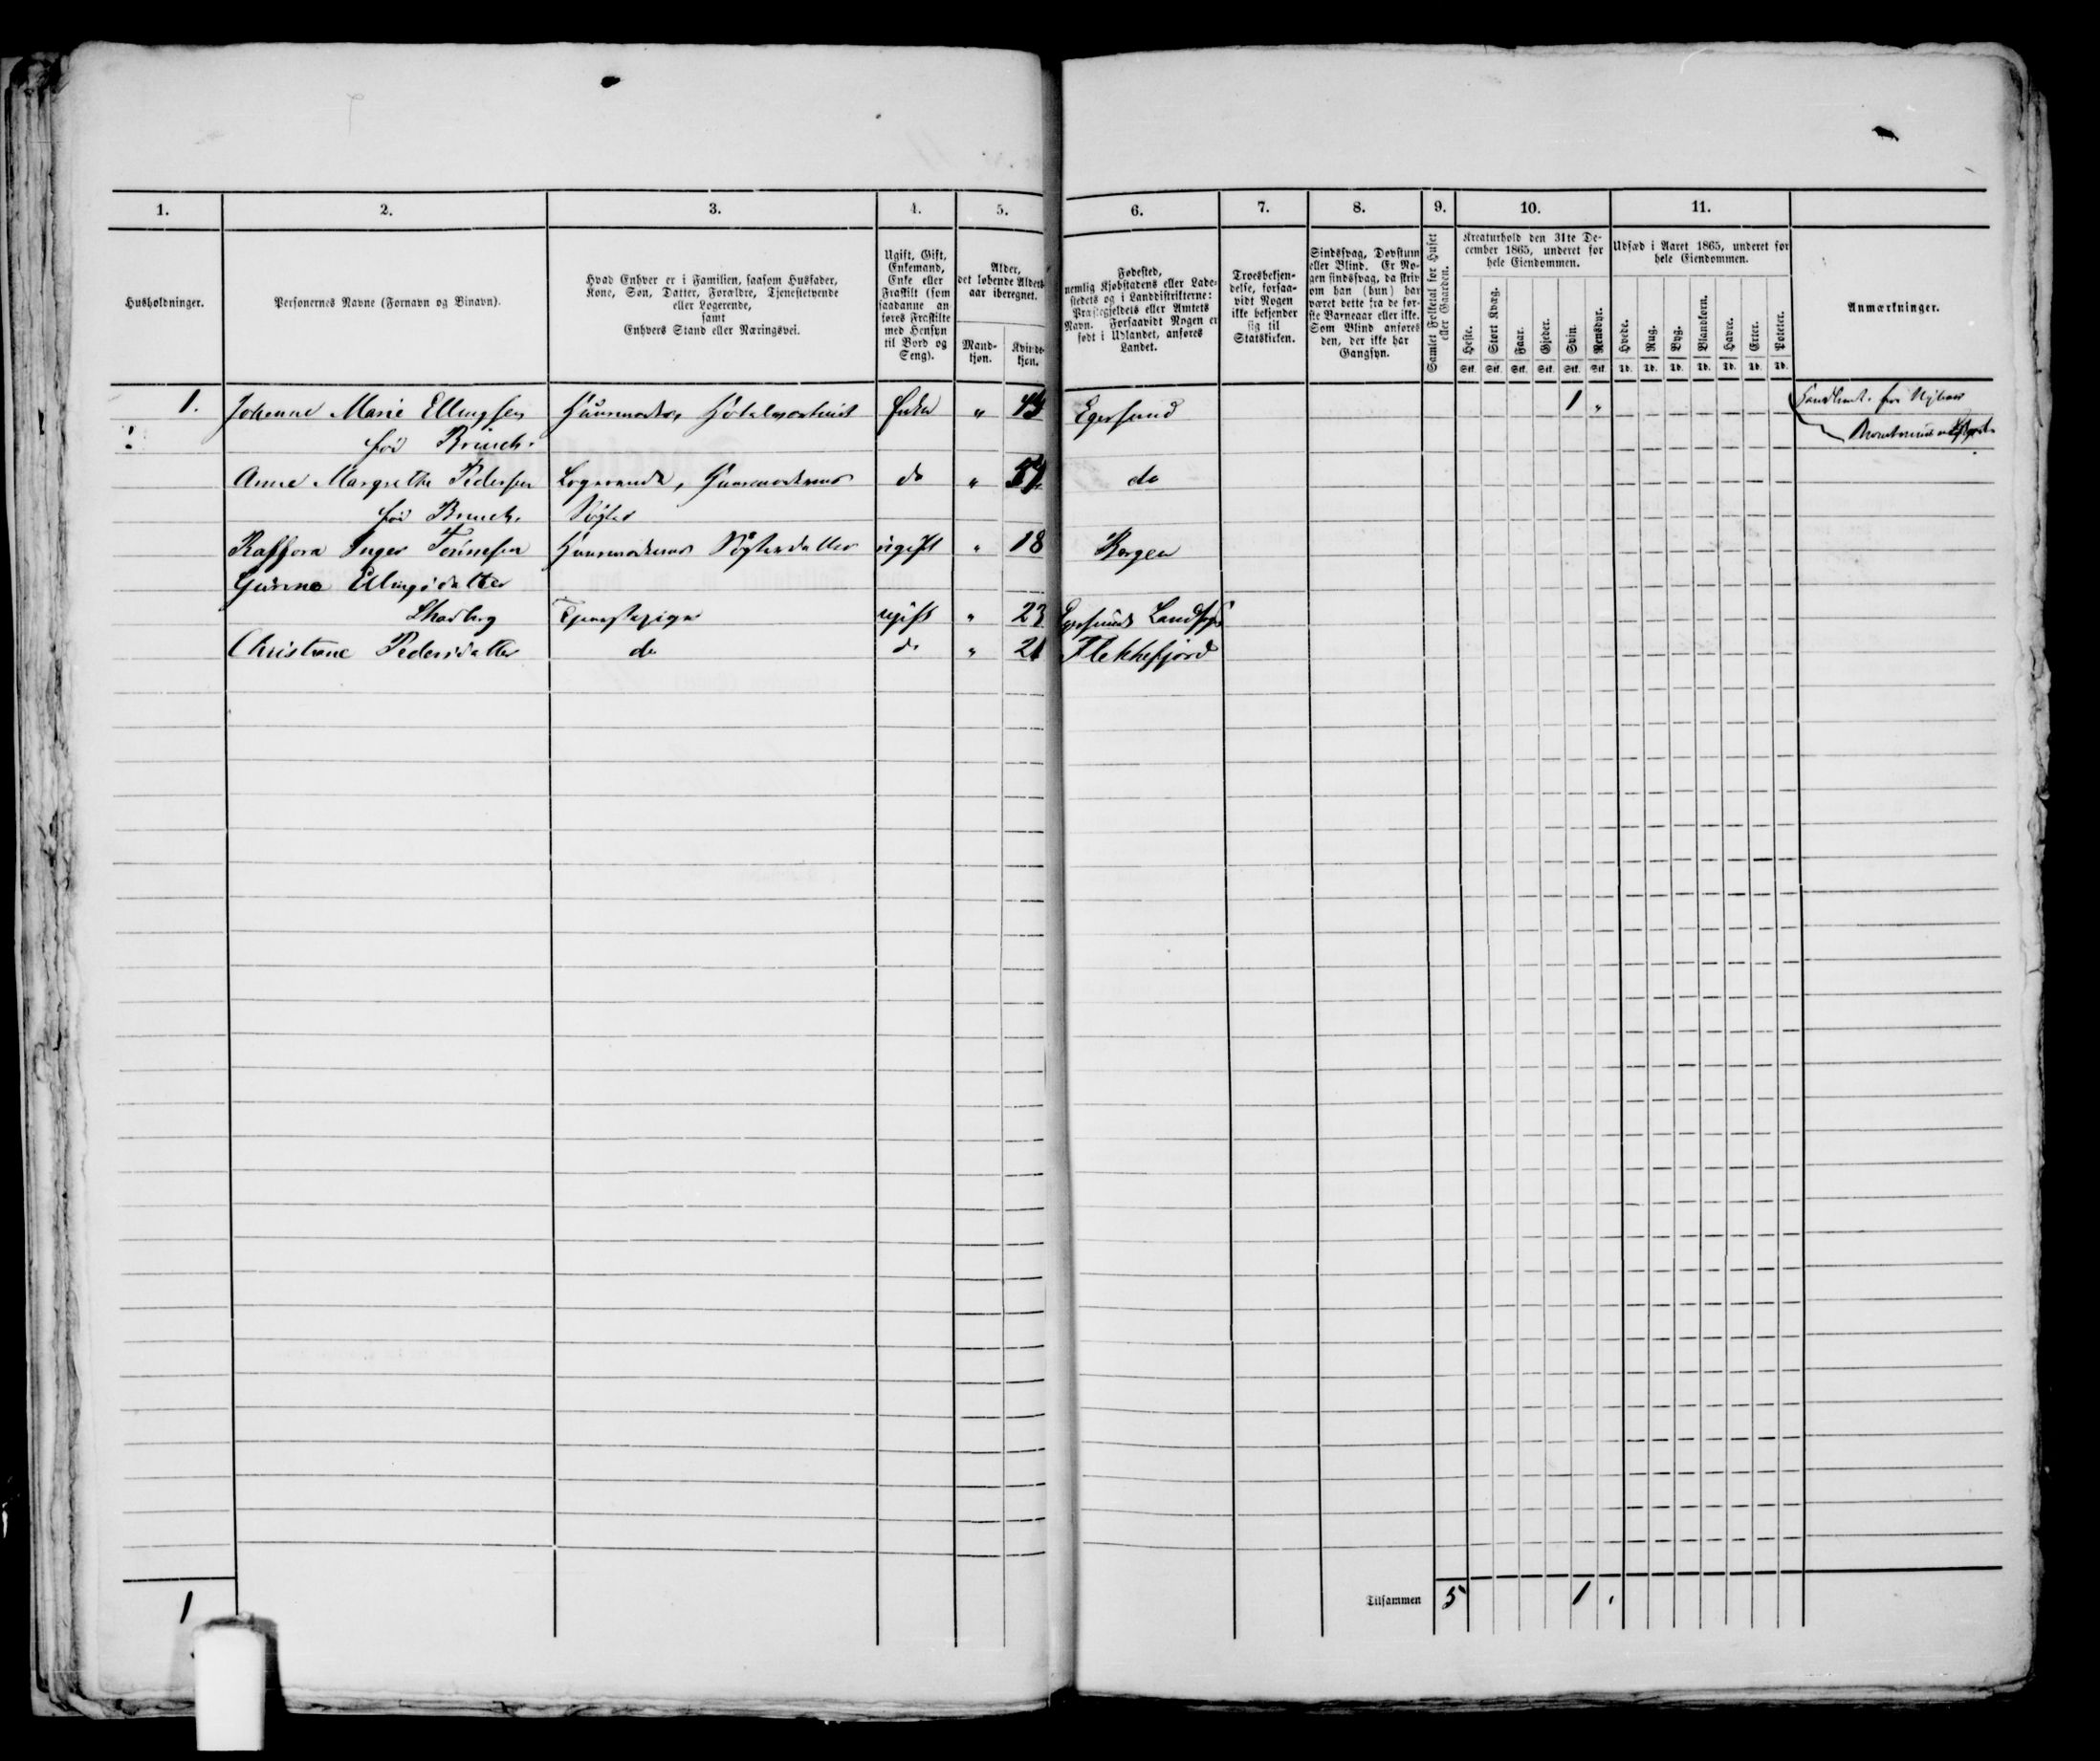 1. 2. 3. 4. 5. 6. 7. 8. 9. 10. 11.
Husholdninger.
Personernes Navne (Fornavn og Binavn).
Hvad Enhver er i Familien, saasom Husfader,
Kone, Søn, Datter, Forældre, Tjenestetyende
eller Logerende,
samt
Enhvers Stand eller Næringsvei.
Ugift, Gift,
Enkemand,
Enke eller
Fraskilt (som
saadanne an
føres Fraskilte
med Hensyn
til Bord og
Seng).
Alder,
det løbende Alders-
aar iberegnet.
Mand-
kjøn.
Kvinde-
kjøn.
Fødested,
nemlig Kjøbstadens eller Lade-
stedets og i Landdistrikterne:
Præstegjeldets eller Amtets
Navn. Forsaavidt Nogen er
født i Udlandet, anføres
Landet.
Troesbekjen-
delse, forsaa-
vidt Nogen
ikke bekjender
sig til
Statskirken.
Sindssvag, Døvstum
eller Blind. Er No-
gen sindssvag, da skriv
om han (hun) har
været dette fra de før-
ste Barneaar eller ikke.
Som Blind anføres
den, der ikke har
Gangsyn.
Samlet Folketal for Huset
eller Gaarden.
Kreaturhold den 31te De-
cember 1865, underet for
hele Eiendommen.
Heste. Stort Kvæg. Faar. Gjeder. Svin. Rensdyr.
Stk. Stk. Stk. Stk. Stk. Stk.
Udsæd i Aaret 1865, underet for
hele Eiendommen.
Hvede. Rug. Byg. Blandkorn. Havre. Erter. Poteter.
Td. Td. Td. Td. Td. Td. Td.
Anmærkninger.
1. Johanne Marie Ellingsen Huusmoder, Hotelværtinde Enke " Egersund 1 "
fød Bruuch.
Anne Margrethe Pedersen Logerende, Huusmoderens do " 57 do
fød Bruuch. Søster
Inger Tønnesen Huusmoderens Søsterdatter ugift " 18 Bergen
Ellingsdatter
Skadberg Tjenestepige ugift " 23 Egersunds
Christiane Pedersdatter do do " 21 Flekkefjord
1 Tilsammen 5 1